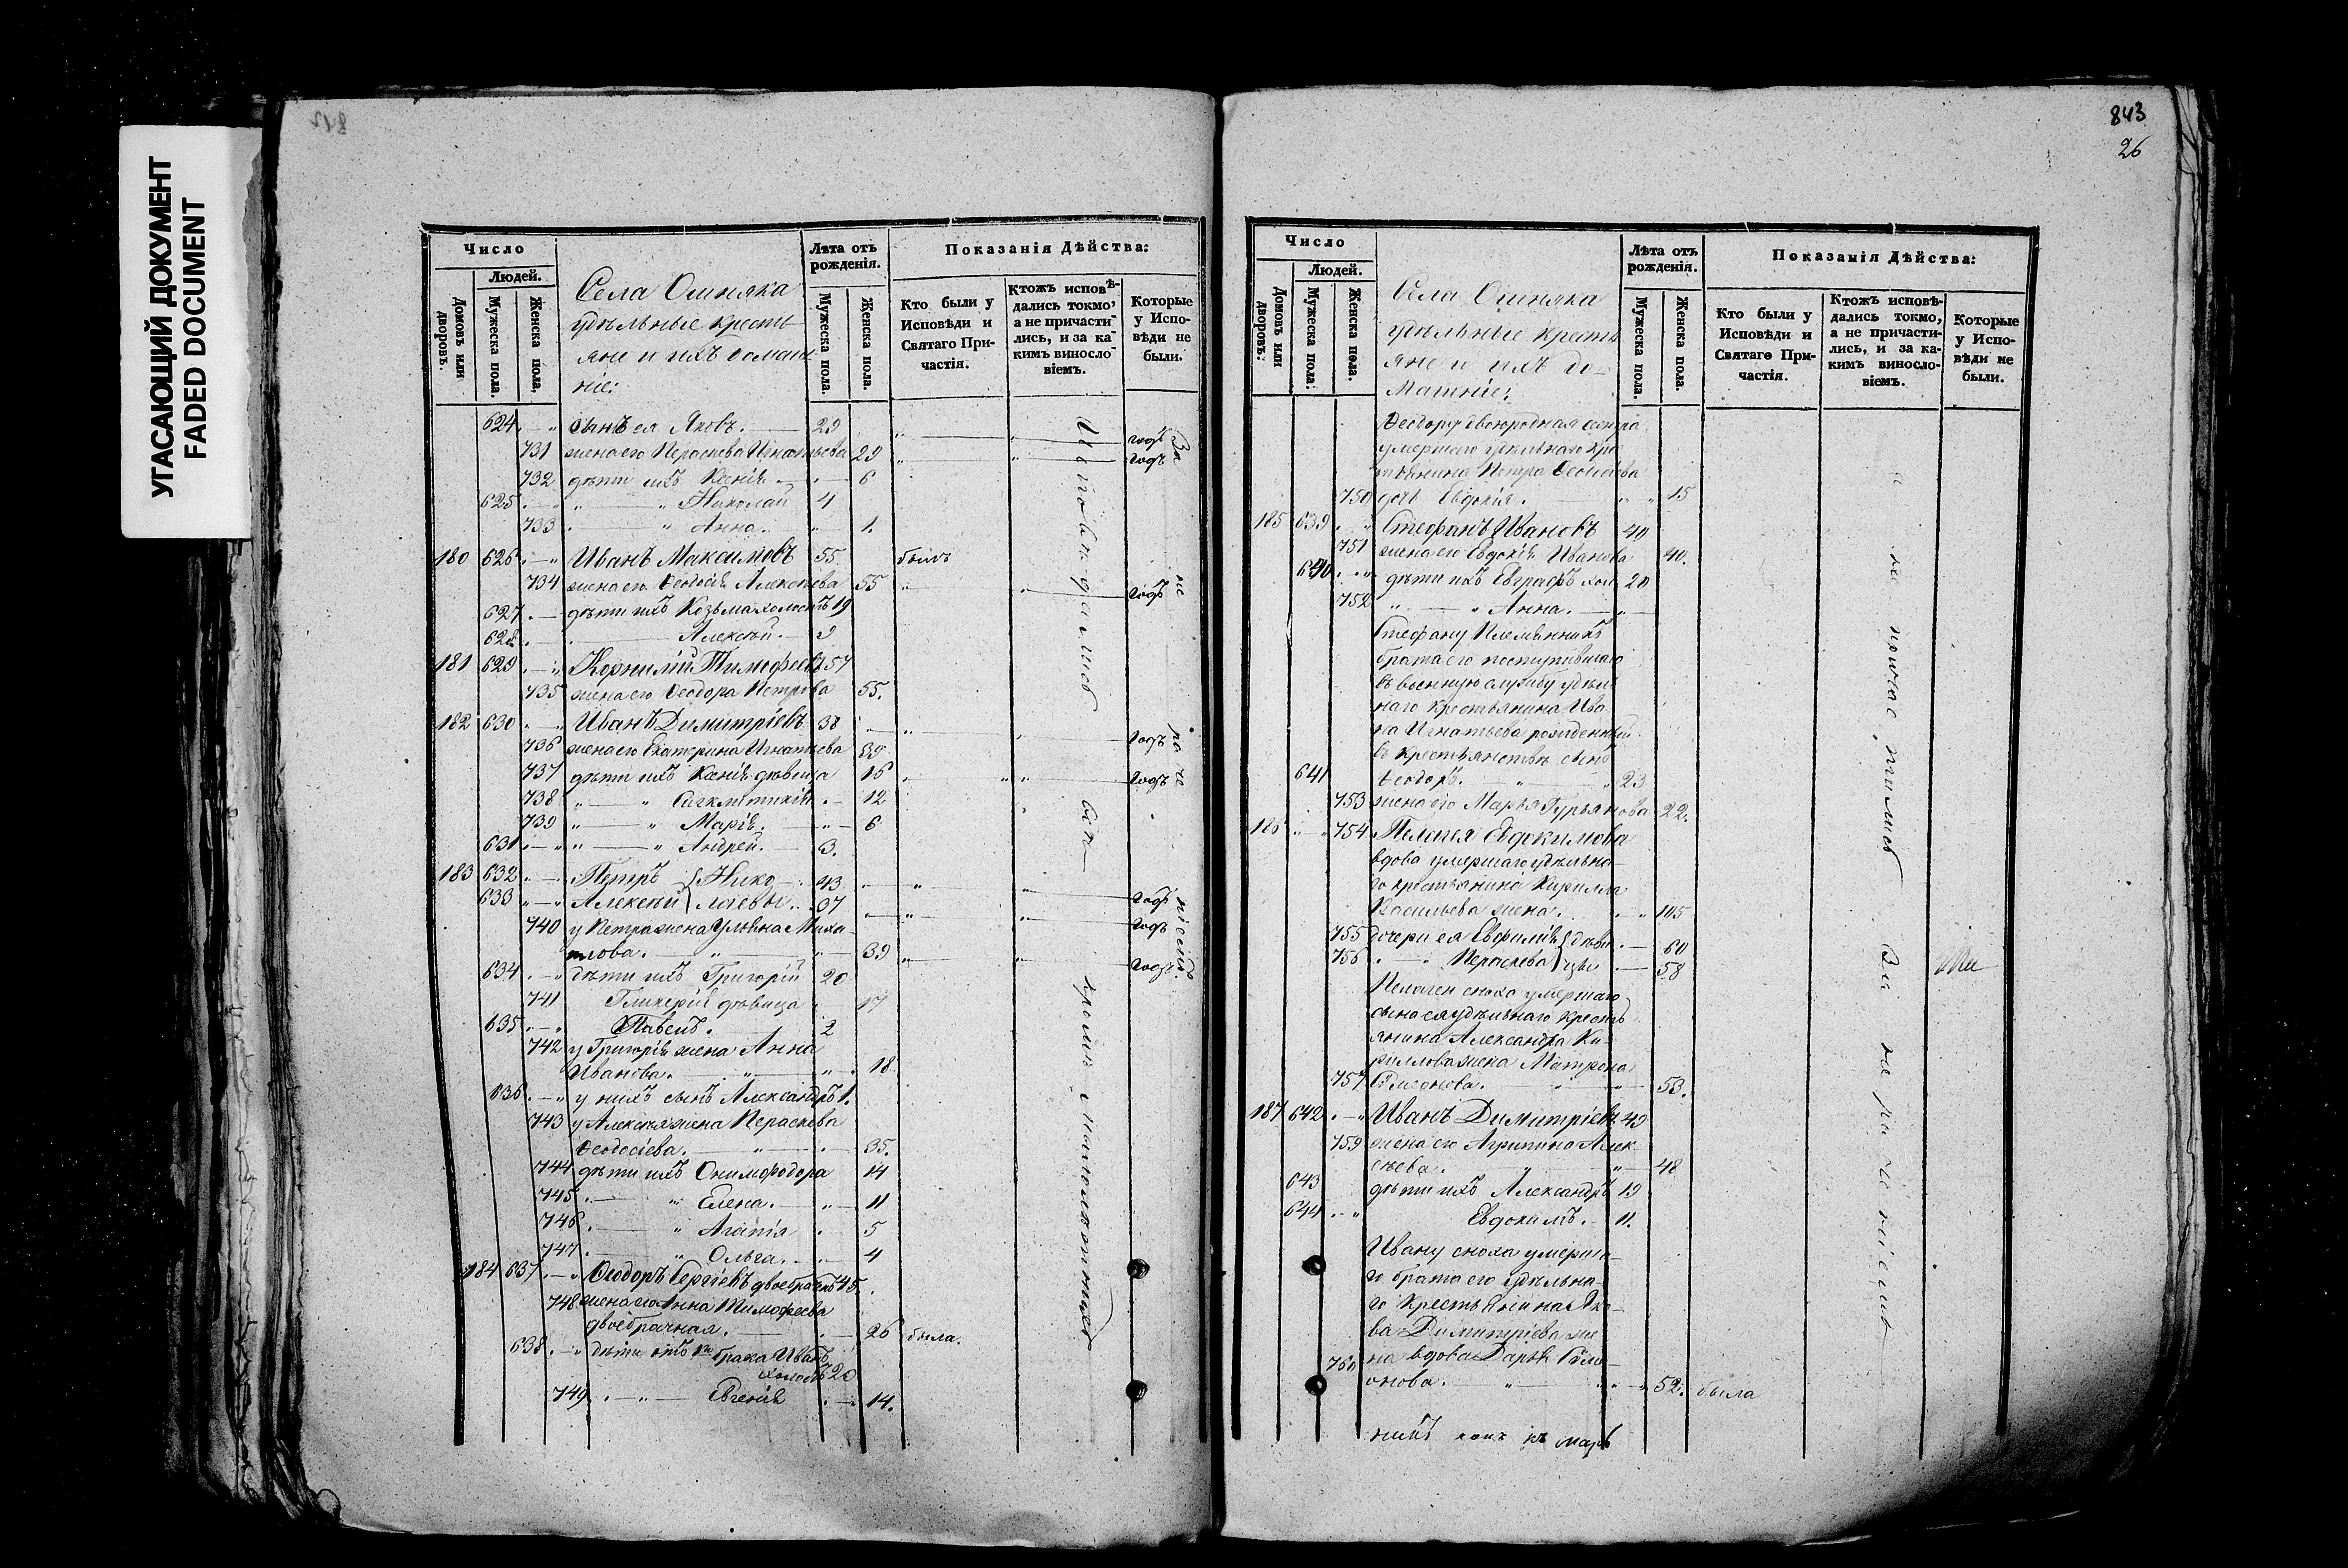 УГАСАЮЩИЙ ДОКУМЕНТ
FADED DOCUMENT
843
26
Число
Людей.
Домовъ или дворовъ.
Мужеска пола.
Женска пола.
Села
удѣльные кресть-
яне и ихъ домаш
ніе:
Лѣта отъ рожденія.
Мужеска пола.
Женска пола.
Показанія Дѣйства:
Кто были у Исповѣди и Святаго При-частія.
Ктожъ исповѣ-дались токмо, а не причасти-лись, и за ка-кимъ винослo-віемъ.
Которые у Испо-вѣди не были.
624 сынъ ея Яковъ. 29
731 жена его Параскева Игнатьева 29
732 дѣти ихъ Ксенія 6
625 Николай 4
733 Анна. 1.
180 626 Иванъ Максимовъ 55 былъ
734 жена его Ѳеодосія Алексѣева 55
627 дѣти ихъ Козьма холостъ 19
628 Алексѣй. 9
181 629 Корнилій Тимофеевъ 57
735 жена его Ѳеодора Петрова 55.
182 630 Иванъ Димитріевъ 38
736 жена его Екатерина Игнатьева 39
737 дѣти ихъ Ксенія дѣвица 16
738 12
739 Марія. 6
631 Андрей. 3.
183 632 Петръ Нико 43
633 Алексѣй лаевы. 37
740 у Петра жена Ульяна Миха
илова. 39
634 дѣти ихъ Григорій 20
741 Гликерія дѣвица 17
635 Павелъ. 2
742 у Григорія жена Анна
Иванова. 18
636 у нихъ сынъ Александръ 1.
743 у Алексѣя жена Параскева
Ѳеодосіева. 35.
744 дѣти ихъ 14
745 Елена. 11
746 Агапія 5
747 Ольга. 4
184 637 Ѳеодоръ Сергіевъ двоебрачн 45.
748 жена его Анна Тимофеева
двоебрачная. 26 была.
638 дѣти отъ 1го брака Иванъ
холостъ 20
749 Евгенія 14.
Исповѣдались вси кромѣ малолѣтнихъ
За не раченіемъ.
Число
Людей.
Домовъ или дворовъ.
Мужеска пола.
Женска пола.
Села
удѣльные кресть
яне и ихъ до-
машніе:
Лѣта отъ рожденія.
Мужеска пола.
Женска пола.
Показанія Дѣйства:
Кто были у Исповѣди и Святаго При-частія.
Ктожъ исповѣ-дались токмо, а не причасти-лись, и за ка-кимъ винослo-віемъ.
Которые у Испо-вѣди не были.
Ѳеодору двоюродная сестра
умершаго удѣльнаго кре
стьянина Петра
750 дочь Евдокія. 15
185 639 Стефанъ Ивановъ 40
751 жена его Евдокія Иванова 40.
640 дѣти ихъ Евграфъ хол 20
752 Анна.
Стефану племянникъ
брата его поступившаго
въ военную службу удѣль
наго крестьянина Ива
на Игнатьева рожденный
въ крестьянствѣ сынъ
641 Ѳеодоръ. 23
753 жена его Марья Гурьянова 22.
186 754 Пелагея Евдокимова
вдова умершаго удѣльна
го крестьянина Кирилла
Васильева жена. 105
755 дочери ея Евфимія дѣви 60
756 Параскева цы 58
Пелагеи сноха умершаго
сына ея удѣльнаго кресть
янина Александра Ки
риллова жена Матрона
757 53.
187 642 Иванъ Димитріевъ 49
759 жена его Агрипина Алек
сѣева. 48
643 дѣти ихъ Александръ 19
644 Евдокимъ. 11.
Ивану сноха умерша-
го брата его удѣльна-
го крестьянина Яко-
ва Димитріева же
760 на вдова Дарья
онова. 52. была
За не раченіемъ